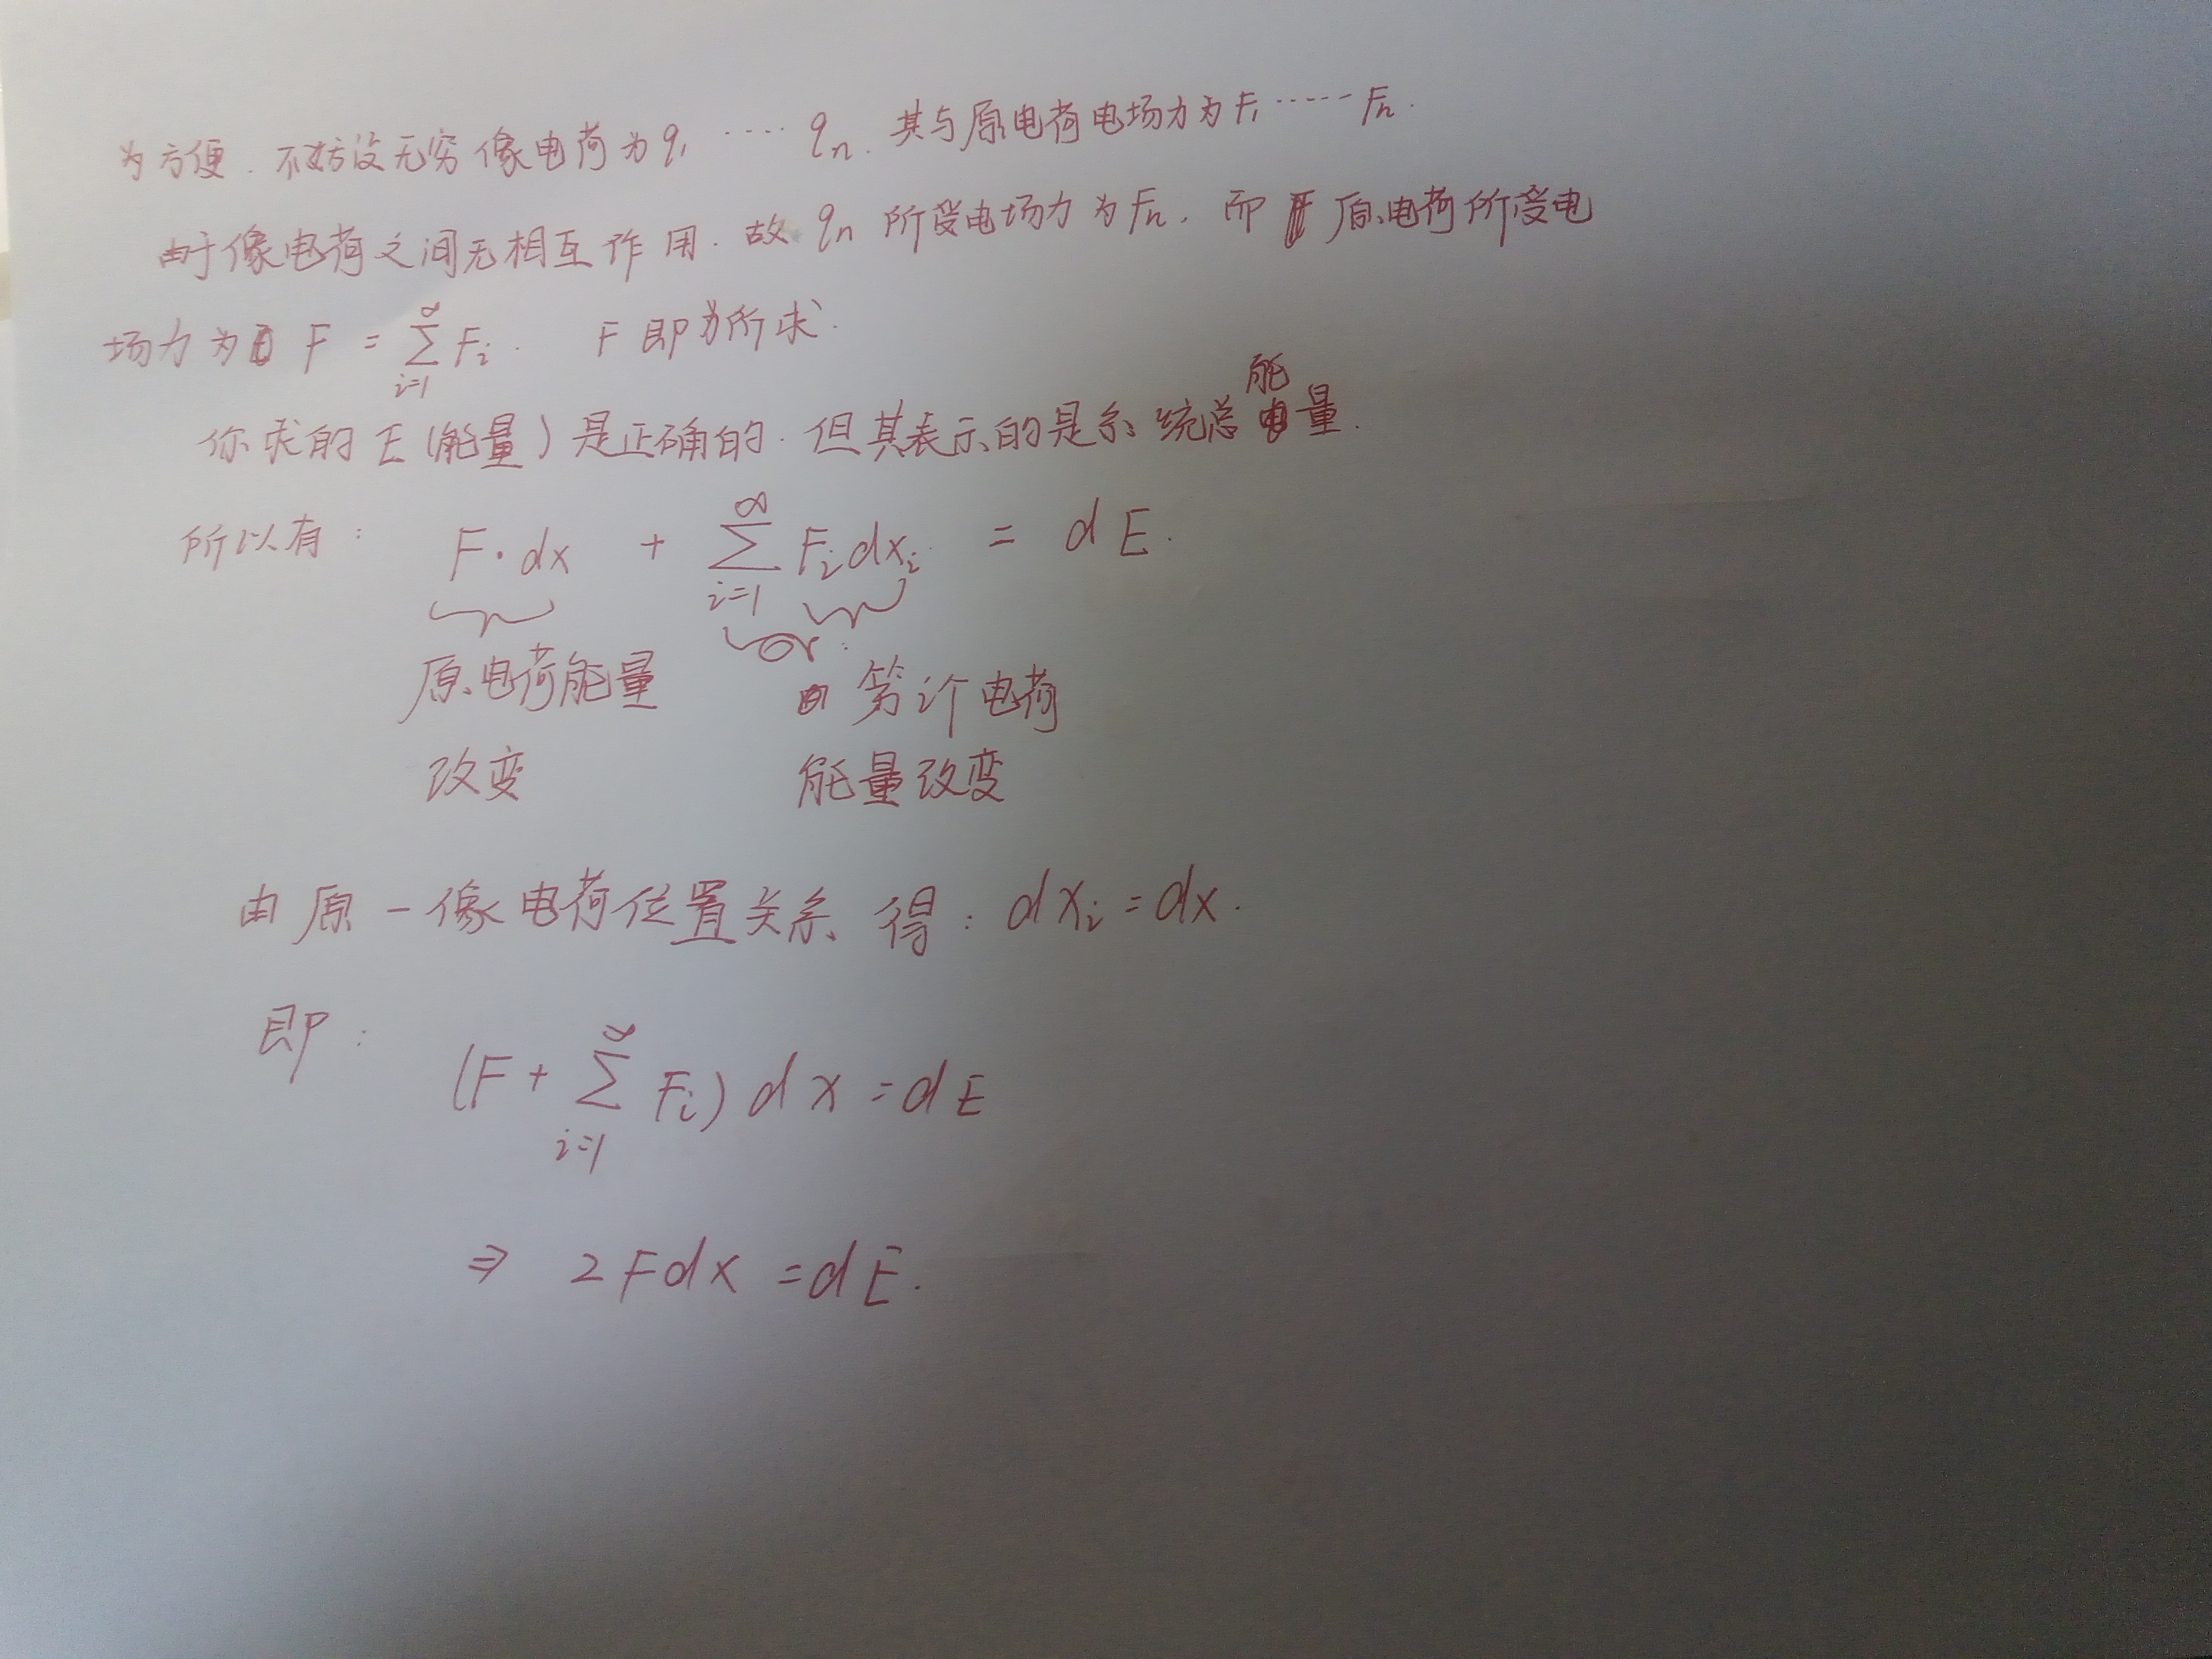 为方便.不妨设无穷像电荷为q₁ ‥‥ qₙ.其与原电荷电场力为F₁ ‥‥‥ Fₙ.
由于像电荷之间无相互作用.故 qₙ 所受电场力为Fₙ.而 原电荷所受电
场力为 F = ∑_{i=1}^{∞} Fᵢ. F 即为所求.
你求的 E(能量)是正确的.但其表示的是系统总能量.
所以有: F·dx + ∑_{i=1}^{∞} Fᵢdxᵢ = dE.
or:
原电荷能量 第i个电荷
改变 能量改变
由原-像电荷位置关系 得: dxᵢ=dx.
即:
(F+ ∑_{i=1}^{∞} Fᵢ) dx=dE
⇒ 2Fdx =dE.